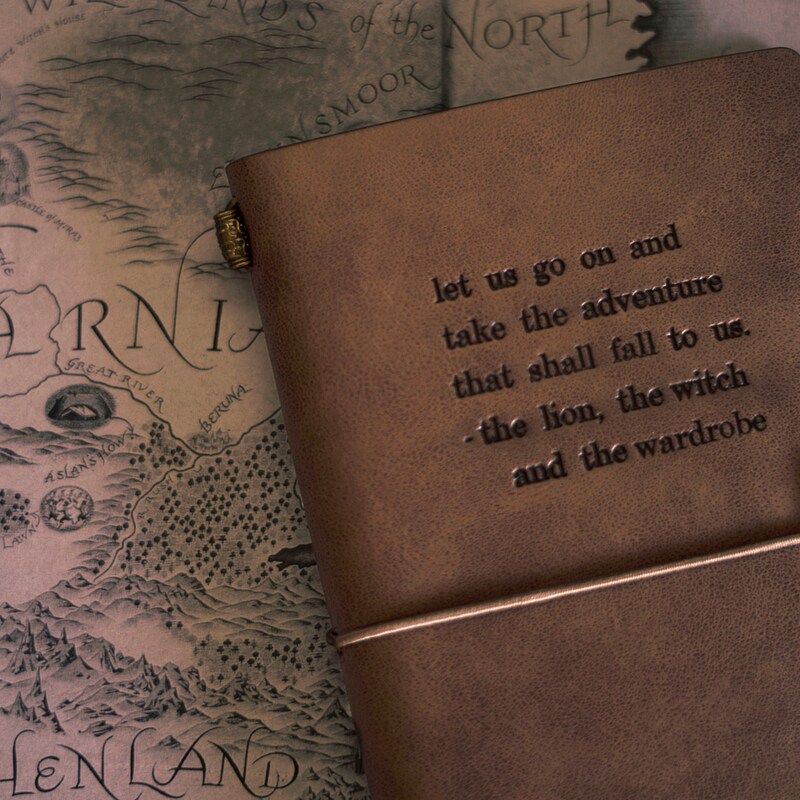 WILD LANDS of the NORTH
NSMOOR
CASTLE of MIRAZ
ARNIA
GREAT RIVER
BERUNA
ASLAN'S HOW
LAWN
HENLAND
let us go on and
take the adventure
that shall fall to us.
-the lion, the witch
and the wardrobe